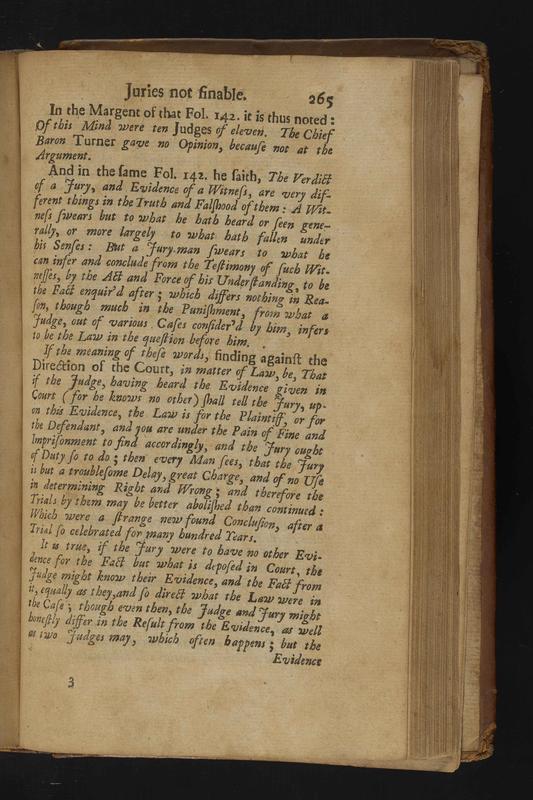 Juries not finable. 265
In the Margent of that Fol. 142. it is thus noted:
Of this Mind were ten Judges of eleven. The Chief
Baron Turner gave no Opinion, becauſe not at the
Argument.
And in the ſame Fol. 142. he ſaith, The Verdict
of a Jury, and Evidence of a Witneſs, are very dif-
ferent things in the Truth and Falſhood of them: A Wit-
neſs ſwears but to what he hath heard or ſeen gene-
rally, or more largely to what hath fallen under
his Senſes: But a Jury-man ſwears to what he
can infer and conclude from the Teſtimony of ſuch Wit-
neſſes, by the Act and Force of his Underſtanding, to be
the Fact enquir'd after; which differs nothing in Rea-
ſon, though much in the Puniſhment, from what a
Judge, out of various Caſes conſider'd by him, infers
to be the Law in the queſtion before him.
If the meaning of theſe words, finding againſt the
Direction of the Court, in matter of Law, be, That
if the Judge, having heard the Evidence given in
Court (for he knows no other) ſhall tell the Jury, up-
on this Evidence, the Law is for the Plaintiff, or for
the Defendant, and you are under the Pain of Fine and
Impriſonment to find accordingly, and the Jury ought
of Duty ſo to do; then every Man ſees, that the Jury
is but a troubleſome Delay, great Charge, and of no Uſe
in determining Right and Wrong; and therefore the
Trials by them may be better aboliſhed than continued:
Which were a ſtrange new found Concluſion, after a
Trial ſo celebrated for many hundred Years.
It is true, if the Jury were to have no other Evi-
dence for the Fact but what is depoſed in Court, the
Judge might know their Evidence, and the Fact from
it, equally as they, and ſo direct what the Law were in
the Caſe; though even then, the Judge and Jury might
honeſtly differ in the Reſult from the Evidence, as well
as two Judges may, which often happens; but the
Evidence
3